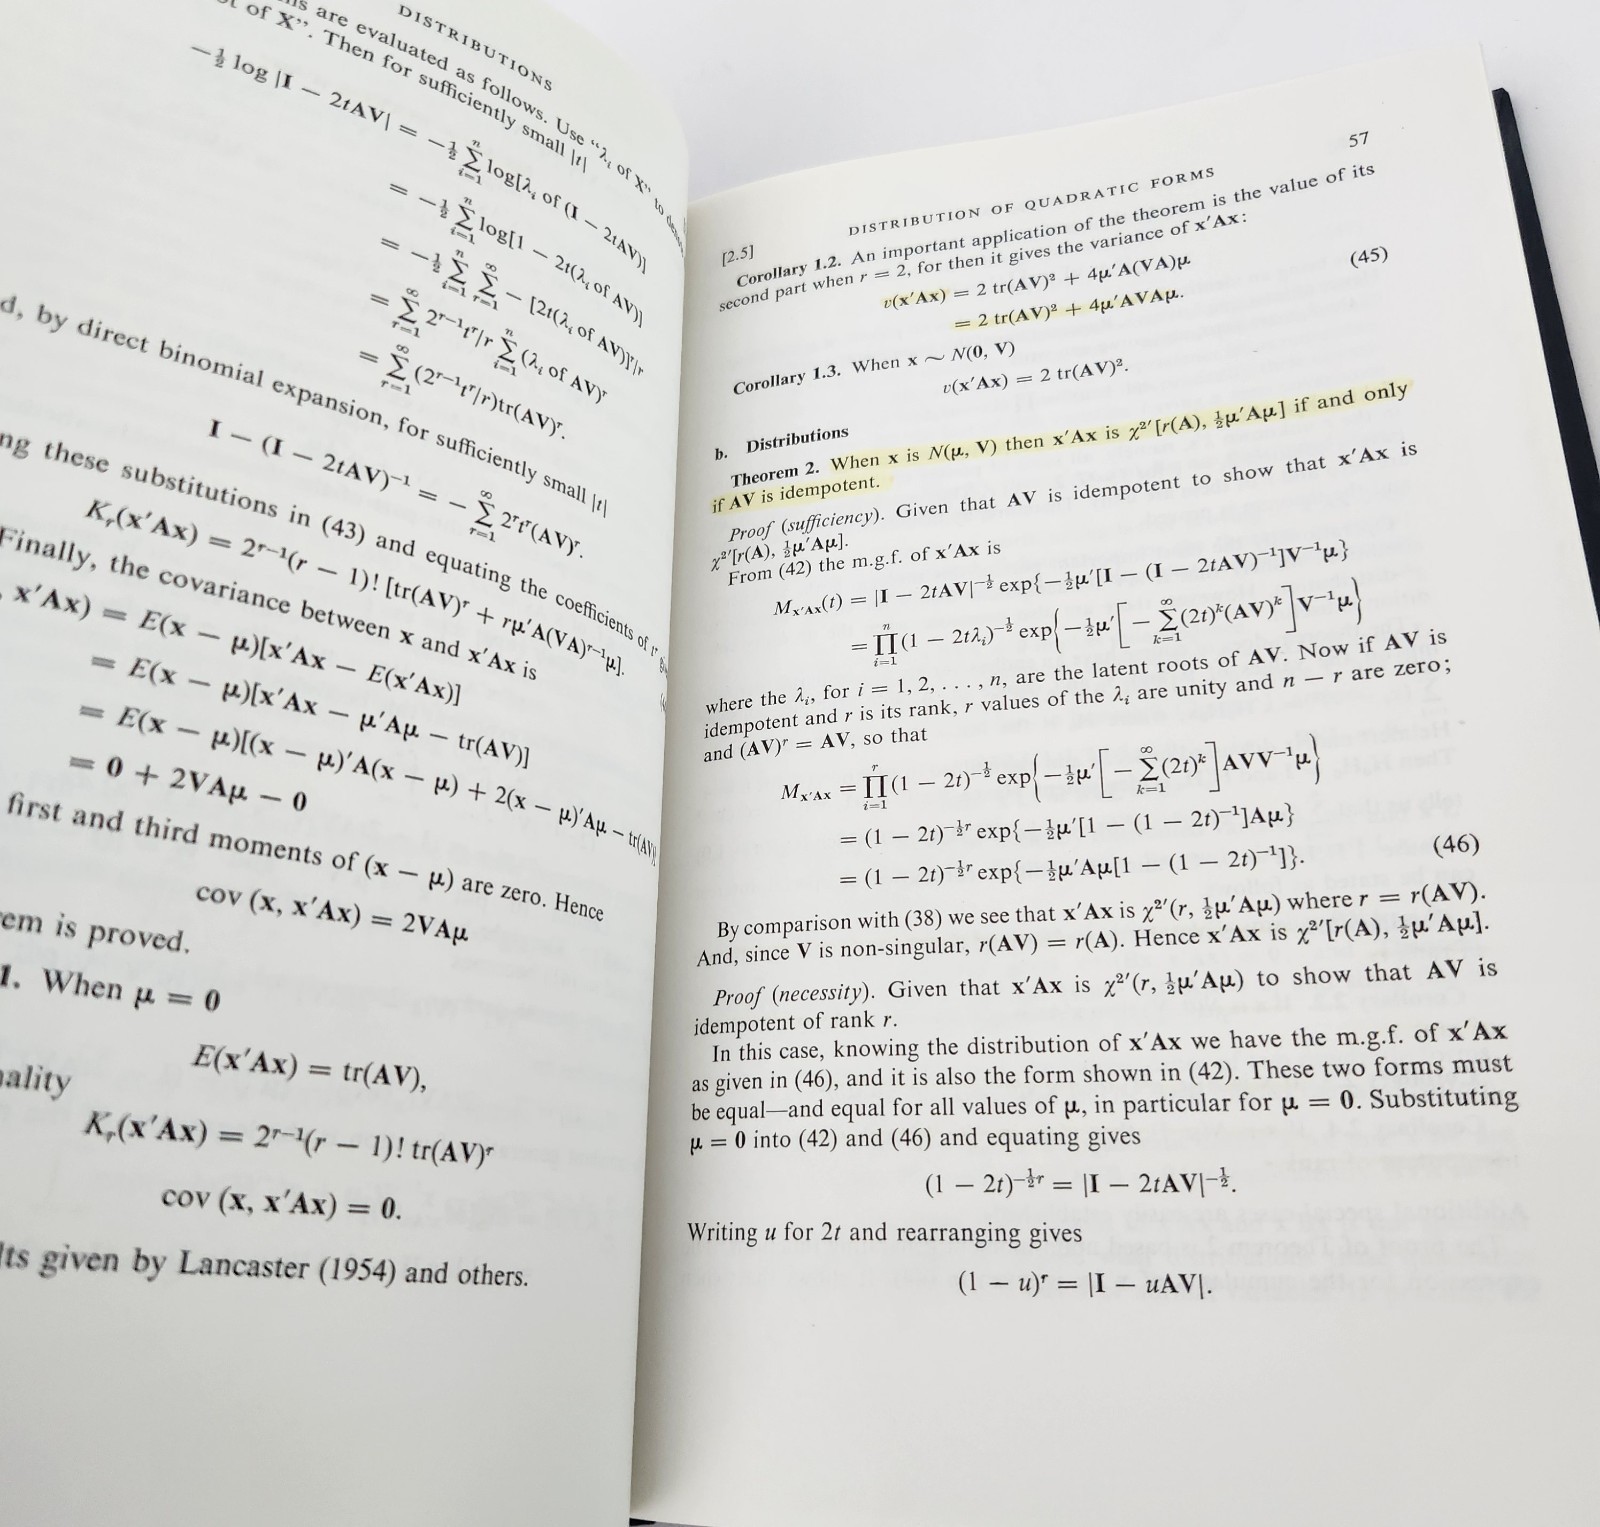 DISTRIBUTIONS
are evaluated as follows. Use “λᵢ of X” to
of X”. Then for sufficiently small |t|
−½ log |I − 2tAV| = −½ Σᵢ₌₁ⁿ log[λᵢ of (I − 2tAV)]
= −½ Σᵢ₌₁ⁿ log[1 − 2t(λᵢ of AV)]
= −½ Σᵢ₌₁ⁿ Σᵣ₌₁^∞ − [2t(λᵢ of AV)]ʳ/r
= Σᵣ₌₁^∞ 2ʳ⁻¹tʳ/r Σᵢ₌₁ⁿ (λᵢ of AV)ʳ
= Σᵣ₌₁^∞ (2ʳ⁻¹tʳ/r)tr(AV)ʳ.
d, by direct binomial expansion, for sufficiently small |t|
I − (I − 2tAV)⁻¹ = − Σᵣ₌₁^∞ 2ʳtʳ(AV)ʳ.
ng these substitutions in (43) and equating the coefficients of tʳ
Kᵣ(x′Ax) = 2ʳ⁻¹(r − 1)! [tr(AV)ʳ + rμ′A(VA)ʳ⁻¹μ].
Finally, the covariance between x and x′Ax is
, x′Ax) = E(x − μ)[x′Ax − E(x′Ax)]
= E(x − μ)[x′Ax − μ′Aμ − tr(AV)]
= E(x − μ)[(x − μ)′A(x − μ) + 2(x − μ)′Aμ − tr(AV)]
= 0 + 2VAμ − 0
first and third moments of (x − μ) are zero. Hence
cov (x, x′Ax) = 2VAμ
em is proved.
1. When μ = 0
E(x′Ax) = tr(AV),
ality
Kᵣ(x′Ax) = 2ʳ⁻¹(r − 1)! tr(AV)ʳ
cov (x, x′Ax) = 0.
lts given by Lancaster (1954) and others.
[2.5] DISTRIBUTION OF QUADRATIC FORMS 57
Corollary 1.2. An important application of the theorem is the value of its
second part when r = 2, for then it gives the variance of x′Ax:
v(x′Ax) = 2 tr(AV)² + 4μ′A(VA)μ (45)
= 2 tr(AV)² + 4μ′AVAμ.
Corollary 1.3. When x ∼ N(0, V)
v(x′Ax) = 2 tr(AV)².
b. Distributions
Theorem 2. When x is N(μ, V) then x′Ax is χ²′[r(A), ½μ′Aμ] if and only
if AV is idempotent.
Proof (sufficiency). Given that AV is idempotent to show that x′Ax is
χ²′[r(A), ½μ′Aμ].
From (42) the m.g.f. of x′Ax is
Mₓ′ₐₓ(t) = |I − 2tAV|^−½ exp{−½μ′[I − (I − 2tAV)⁻¹]V⁻¹μ}
= Πᵢ₌₁ⁿ (1 − 2tλᵢ)^−½ exp{−½μ′[− Σₖ₌₁^∞ (2t)ᵏ(AV)ᵏ]V⁻¹μ}
where the λᵢ, for i = 1, 2, . . . , n, are the latent roots of AV. Now if AV is
idempotent and r is its rank, r values of the λᵢ are unity and n − r are zero;
and (AV)ʳ = AV, so that
Mₓ′ₐₓ = Πᵢ₌₁ʳ (1 − 2t)^−½ exp{−½μ′[− Σₖ₌₁^∞ (2t)ᵏ]AVV⁻¹μ}
= (1 − 2t)^−½r exp{−½μ′[1 − (1 − 2t)⁻¹]Aμ}
= (1 − 2t)^−½r exp{−½μ′Aμ[1 − (1 − 2t)⁻¹]}. (46)
By comparison with (38) we see that x′Ax is χ²′(r, ½μ′Aμ) where r = r(AV).
And, since V is non-singular, r(AV) = r(A). Hence x′Ax is χ²′[r(A), ½μ′Aμ].
Proof (necessity). Given that x′Ax is χ²′(r, ½μ′Aμ) to show that AV is
idempotent of rank r.
In this case, knowing the distribution of x′Ax we have the m.g.f. of x′Ax
as given in (46), and it is also the form shown in (42). These two forms must
be equal—and equal for all values of μ, in particular for μ = 0. Substituting
μ = 0 into (42) and (46) and equating gives
(1 − 2t)^−½r = |I − 2tAV|^−½.
Writing u for 2t and rearranging gives
(1 − u)ʳ = |I − uAV|.